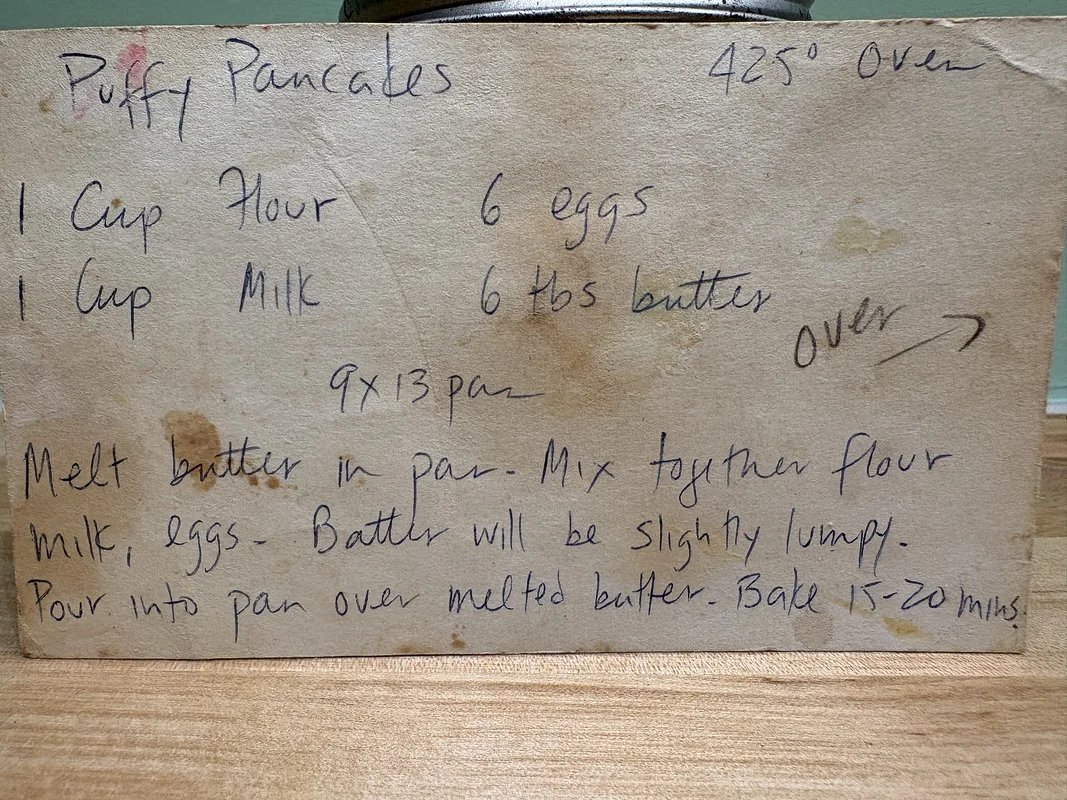 Puffy Pancakes 425° Oven
1 Cup Flour 6 eggs
1 Cup Milk 6 tbs butter
over →
9x13 pan
Melt butter in pan. Mix together flour
milk, eggs. Batter will be slightly lumpy.
Pour into pan over melted butter. Bake 15-20 mins.